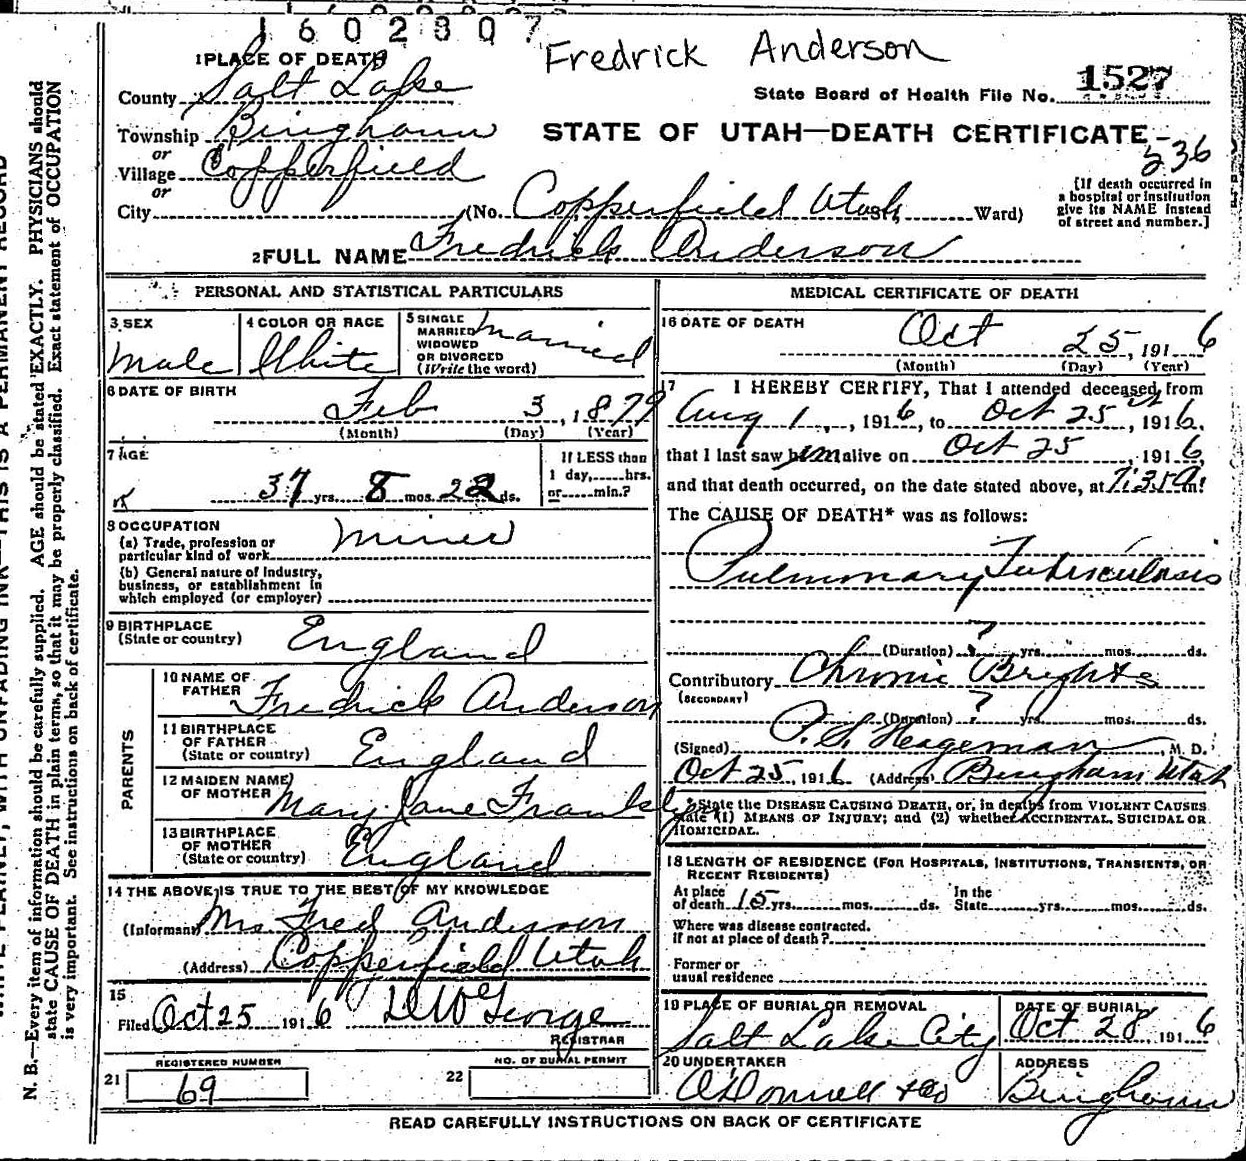 1602307
Fredrick Anderson
1 PLACE OF DEATH
County Salt Lake
State Board of Health File No. 1527
Township Bingham
STATE OF UTAH—DEATH CERTIFICATE
236
or
Village Copperfield
or
City (No. Copperfield Utah Ward)
[If death occurred in a hospital or institution give its NAME instead of street and number.]
2 FULL NAME Fredrick Anderson
PERSONAL AND STATISTICAL PARTICULARS
3 SEX
Male
4 COLOR OR RACE
White
5 SINGLE MARRIED WIDOWED OR DIVORCED (Write the word)
married
6 DATE OF BIRTH
Feb 3, 1879
(Month) (Day) (Year)
7 AGE
37 yrs. 8 mos. 22 ds.
If LESS than 1 day, hrs. or min.?
8 OCCUPATION
(a) Trade, profession or particular kind of work miner
(b) General nature of industry, business, or establishment in which employed (or employer)
9 BIRTHPLACE
(State or country) England
PARENTS
10 NAME OF FATHER Fredrick Anderson
11 BIRTHPLACE OF FATHER (State or country) England
12 MAIDEN NAME OF MOTHER Mary Jane Franklyn
13 BIRTHPLACE OF MOTHER (State or country) England
14 THE ABOVE IS TRUE TO THE BEST OF MY KNOWLEDGE
(Informant) Mrs Fred Anderson
(Address) Copperfield Utah
15
Filed Oct 25 1916 D W George
REGISTRAR
REGISTERED NUMBER
21 69
NO. OF BURIAL PERMIT
22
MEDICAL CERTIFICATE OF DEATH
16 DATE OF DEATH
Oct 25, 1916
(Month) (Day) (Year)
17 I HEREBY CERTIFY, That I attended deceased from
Aug 1, 1916, to Oct 25, 1916,
that I last saw him alive on Oct 25, 1916,
and that death occurred, on the date stated above, at 7:35 a m.
The CAUSE OF DEATH* was as follows:
Pulmonary Tuberculosis
(Duration) ? yrs. mos. ds.
Contributory Chronic Brights
(SECONDARY)
(Duration) ? yrs. mos. ds.
(Signed) P. S. Hageman, M. D.
Oct 25, 1916 (Address) Bingham Utah
*State the DISEASE CAUSING DEATH, or, in deaths from VIOLENT CAUSES
state (1) MEANS OF INJURY; and (2) whether ACCIDENTAL, SUICIDAL OR
HOMICIDAL.
18 LENGTH OF RESIDENCE (FOR HOSPITALS, INSTITUTIONS, TRANSIENTS, OR
RECENT RESIDENTS)
At place of death 15 yrs. mos. ds. In the State yrs. mos. ds.
Where was disease contracted.
if not at place of death?
Former or
usual residence
19 PLACE OF BURIAL OR REMOVAL
Salt Lake City
DATE OF BURIAL
Oct 28, 1916
20 UNDERTAKER
O'Donnell & Co
ADDRESS
Bingham
READ CAREFULLY INSTRUCTIONS ON BACK OF CERTIFICATE
N. B.—Every item of information should be carefully supplied. AGE should be stated EXACTLY. PHYSICIANS should
state CAUSE OF DEATH in plain terms, so that it may be properly classified. Exact statement of OCCUPATION
is very important. See instructions on back of certificate.